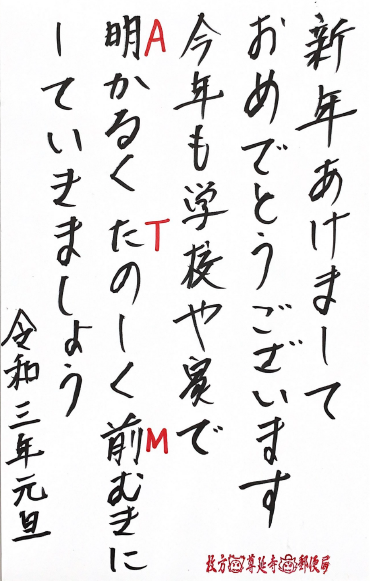 新年あけまして
おめでとうございます
今年も学校や家で
明かるくたのしく前むきに
A T M
していきましょう
令和三年元旦
枚方尊延寺郵便局